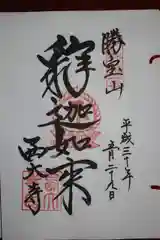 勝宝山
平成三十年
一月二十九日
釋迦如来
西大寺